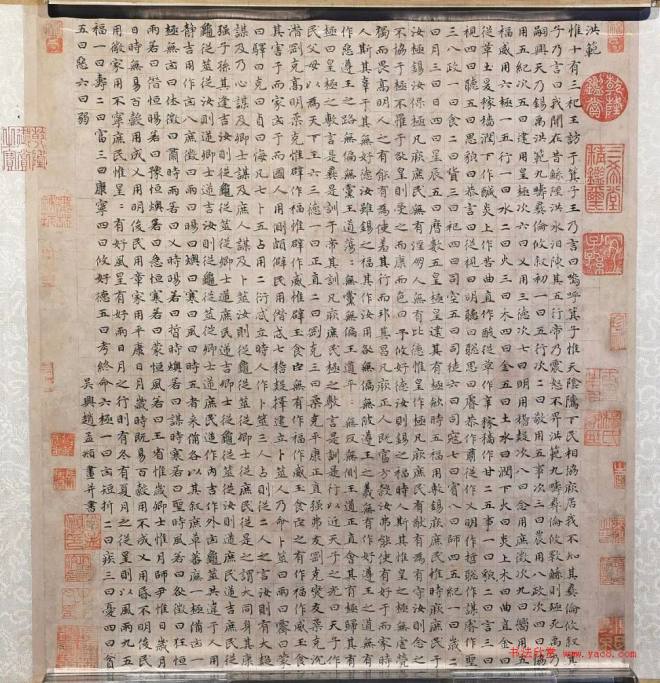 洪範
惟十有三祀王訪于箕子王乃言曰嗚呼箕子惟天陰隲下民相協厥居我不知其彝倫攸叙箕
子乃言曰我聞在昔鯀陻洪水汩陳其五行帝乃震怒不畀洪範九疇彝倫攸斁鯀則殛死禹乃
嗣興天乃錫禹洪範九疇彝倫攸叙初一曰五行次二曰敬用五事次三曰農用八政次四曰協
用五紀次五曰建用皇極次六曰乂用三德次七曰明用稽疑次八曰念用庶徵次九曰嚮用五
福威用六極一五行一曰水二曰火三曰木四曰金五曰土水曰潤下火曰炎上木曰曲直金曰
從革土爰稼穡潤下作鹹炎上作苦曲直作酸從革作辛稼穡作甘二五事一曰貌二曰言三曰
視四曰聽五曰思貌曰恭言曰從視曰明聽曰聰思曰睿恭作肅從作乂明作哲聰作謀睿作聖
三八政一曰食二曰貨三曰祀四曰司空五曰司徒六曰司寇七曰賓八曰師四五紀一曰歲二
曰月三曰日四曰星辰五曰曆數五皇極皇建其有極歛時五福用敷錫厥庶民惟時厥庶民于
汝極錫汝保極凡厥庶民無有淫朋人無有比德惟皇作極凡厥庶民有猷有為有守汝則念之
不協于極不罹于咎皇則受之而康而色曰予攸好德汝則錫之福時人斯其惟皇之極無虐煢
獨而畏高明人之有能有為使羞其行而邦其昌凡厥正人既富方穀汝弗能使有好于而家時
人斯其辜于其無好德汝雖錫之福其作汝用咎無偏無陂遵王之義無有作好遵王之道無有
作惡遵王之路無偏無黨王道蕩=無黨無偏王道平=無反無側王道正直會其有極歸其有
極曰皇極之敷言是彝是訓于帝其訓凡厥庶民極之敷言是訓是行以近天子之光曰天子作
民父母以為天下王六三德一曰正直二曰剛克三曰柔克平康正直強弗友剛克燮友柔克沉
潛剛克高明柔克惟辟作福惟辟作威惟辟玉食臣無有作福作威玉食臣之有作福作威玉食
其害于而家凶于而國人用側頗僻民用僭忒七稽疑擇建立卜筮人乃命卜筮曰雨曰霽曰蒙
曰驛曰克曰貞曰悔凡七卜五占用二衍忒立時人作卜筮三人占則從二人之言汝則有大疑
謀及乃心謀及卿士謀及庶人謀及卜筮汝則從龜從筮從卿士從庶民從是之謂大同身其康
彊子孫其逢吉汝則從龜從筮從卿士逆庶民逆吉卿士從龜從筮從汝則逆庶民逆吉庶民從
龜從筮從汝則逆卿士逆吉汝則從龜從筮逆卿士逆庶民逆作内吉作外凶龜筮共違于人用
靜吉用作凶八庶徵曰雨曰暘曰燠曰寒曰風曰時五者來備各以其叙庶草蕃廡一極備凶一
極無凶曰休徵曰肅時雨若曰乂時暘若曰哲時燠若曰謀時寒若曰聖時風若曰咎徵曰狂恒
雨若曰僭恒暘若曰豫恒燠若曰急恒寒若曰蒙恒風若曰王省惟歲卿士惟月師尹惟日歲月
日時無易百穀用成乂用明俊民用章家用平康日月歲時既易百穀用不成乂用昏不明俊民
用微家用不寧庶民惟星=有好風星有好雨日月之行則有冬有夏月之從星則以風雨九五
福一曰壽二曰富三曰康寧四曰攸好德五曰考終命六極一曰凶短折二曰疾三曰憂四曰貧
五曰惡六曰弱
吳興趙孟頫畫并書
乾隆鑑賞
三希堂精鑑璽
宜子孫
书法欣赏 www.yac8.com